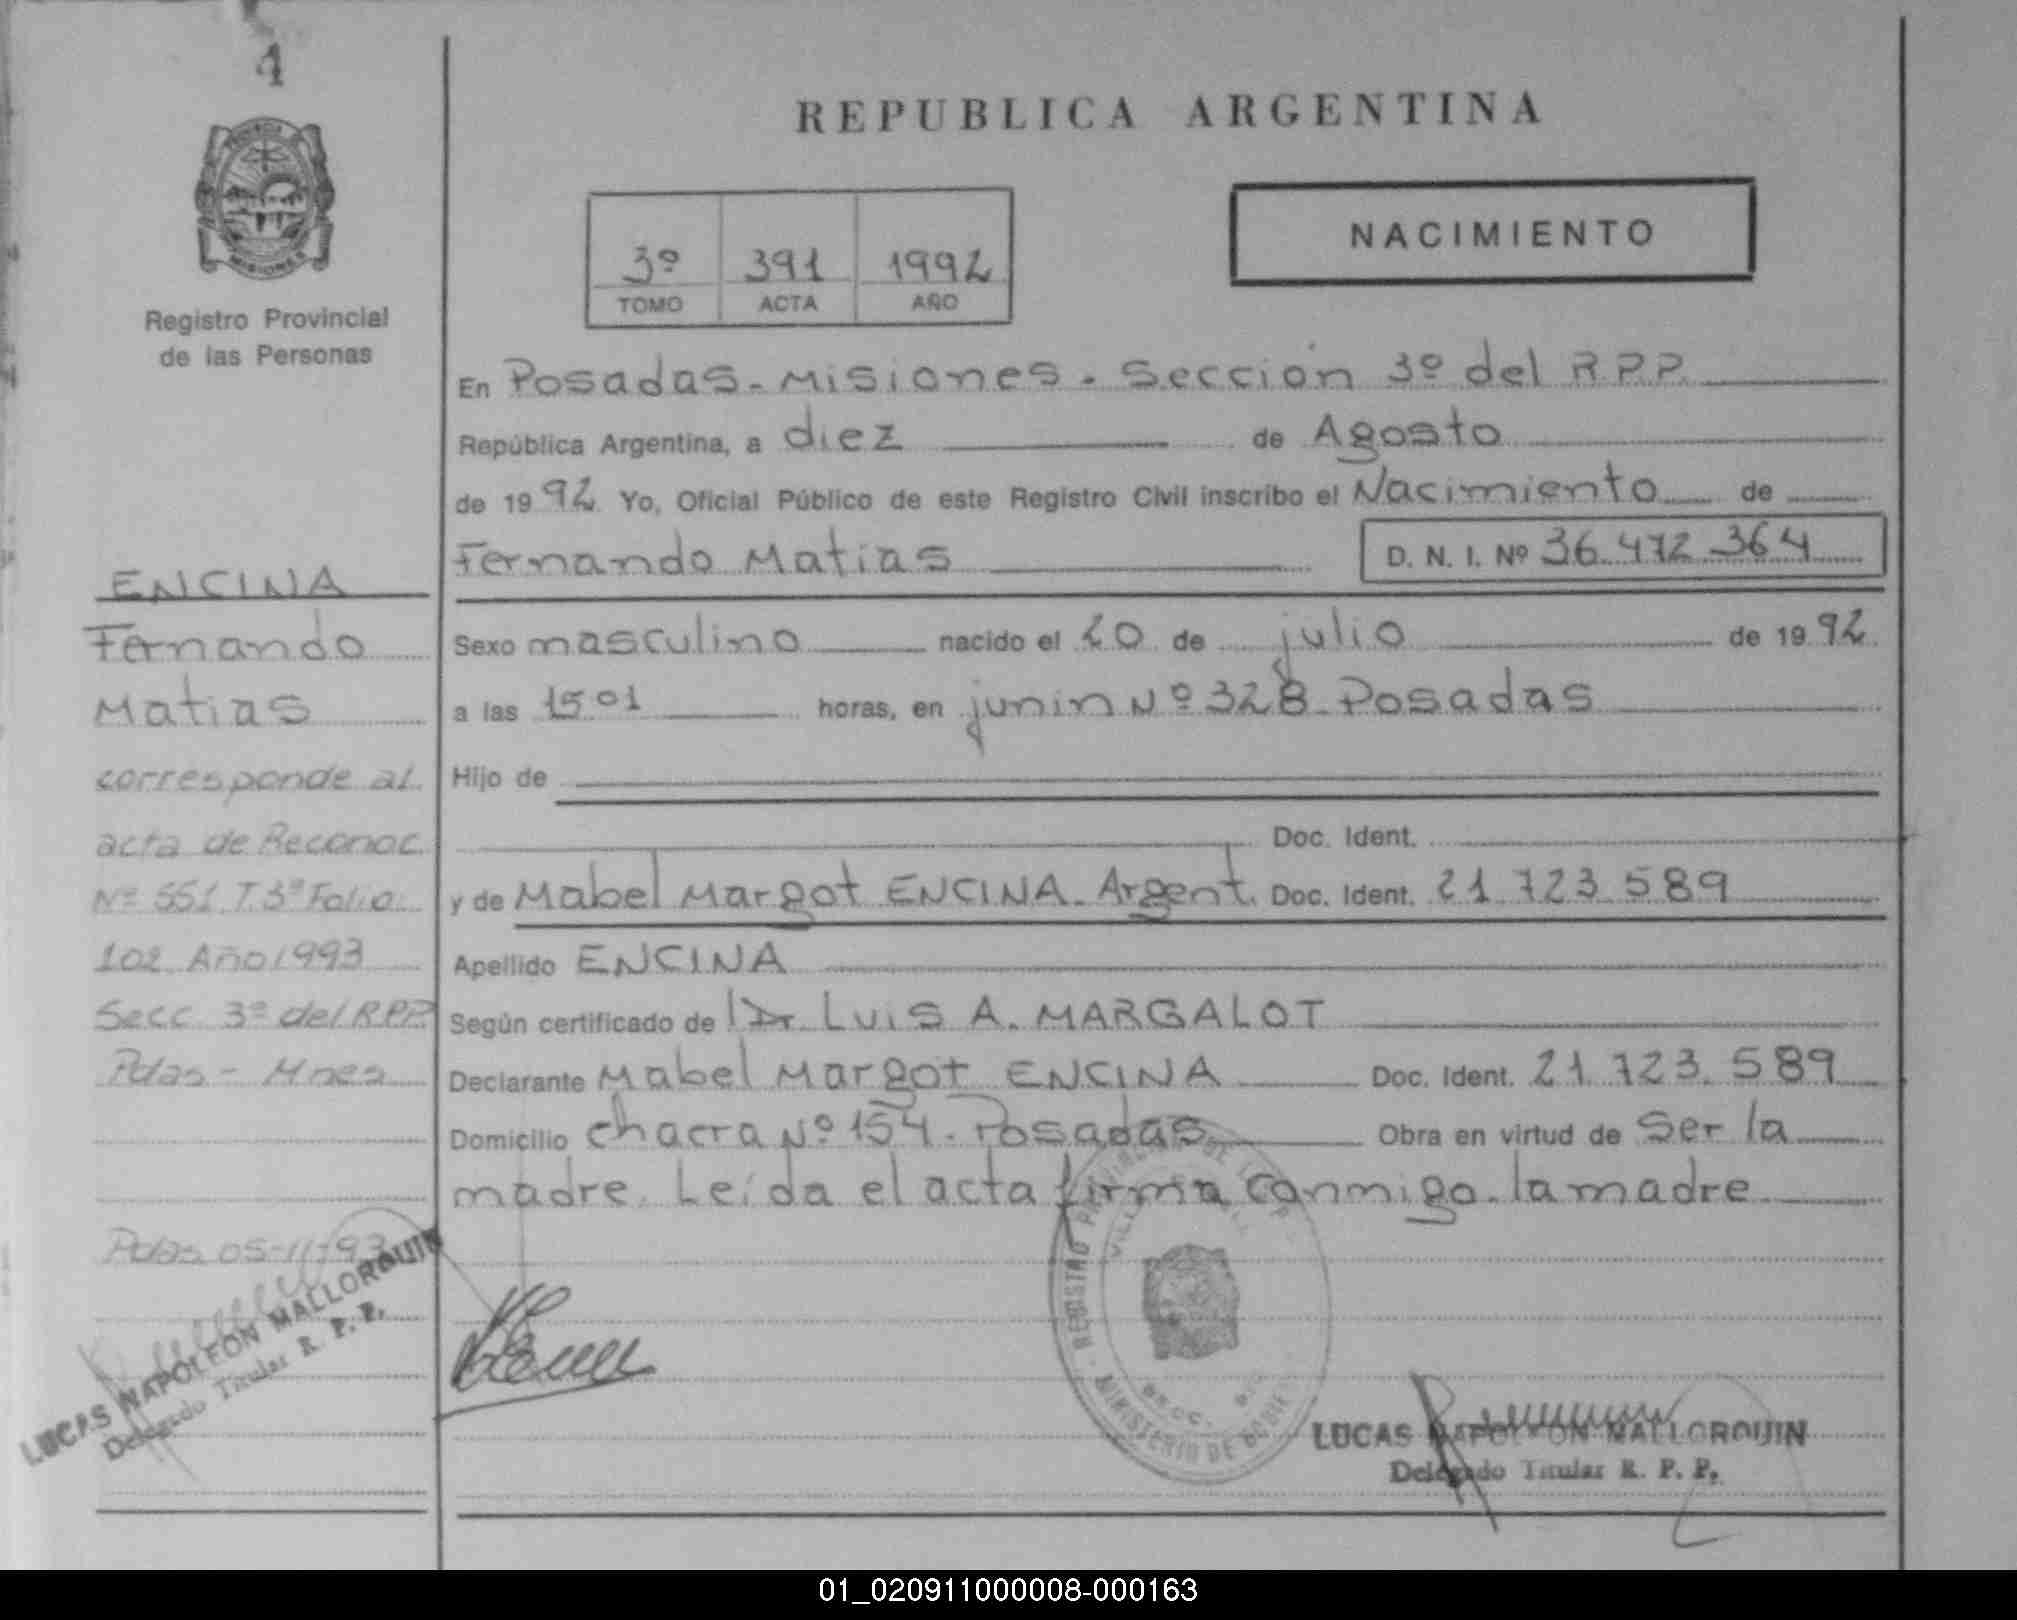 1
REPUBLICA ARGENTINA
NACIMIENTO
3º 391 1992
TOMO ACTA AÑO
MISIONES
Registro Provincial
de las Personas
En Posadas - Misiones - Sección 3º del R.P.P.
República Argentina, a diez de Agosto
de 19 92 Yo, Oficial Público de este Registro Civil inscribo el Nacimiento de
Fernando Matias D. N. I. Nº 36.472.364
Sexo masculino nacido el 20 de julio de 19 92
a las 15 01 horas, en junin Nº 328 Posadas
Hijo de
Doc. Ident.
y de Mabel Margot ENCINA - Argent. Doc. Ident. 21.723.589
Apellido ENCINA
Según certificado de Dr. Luis A. MARGALOT
Declarante Mabel Margot ENCINA Doc. Ident. 21.723.589
Domicilio chacra Nº 154 - Posadas Obra en virtud de ser la
madre. Leída el acta firma conmigo la madre
ENCINA
Fernando
Matias
corresponde al
acta de Reconoc.
Nº 551 T. 3º Folio
102 Año 1993
Secc. 3º del R.P.P.
Pdas - Mnes
Pdas 05-11-93
LUCAS NAPOLEON MALLORQUIN
Delegado Titular R. P. P.
REGISTRO PROVINCIAL DE
MINISTERIO DE
LUCAS NAPOLEON MALLORQUIN
Delegado Titular R. P. P.
01_020911000008-000163